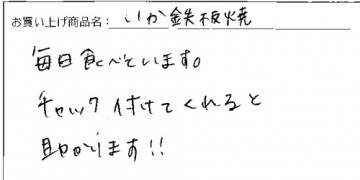 お買い上げ商品名：いか鉄板焼
毎日食べています。
チャック付けてくれると
助かります!!